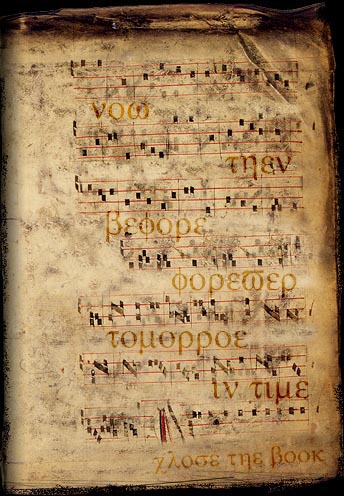 νοω
τηεν
βεφορε
φορεϖερ
τομορροε
ιν τιμε
χλοσε τηε βοοκ